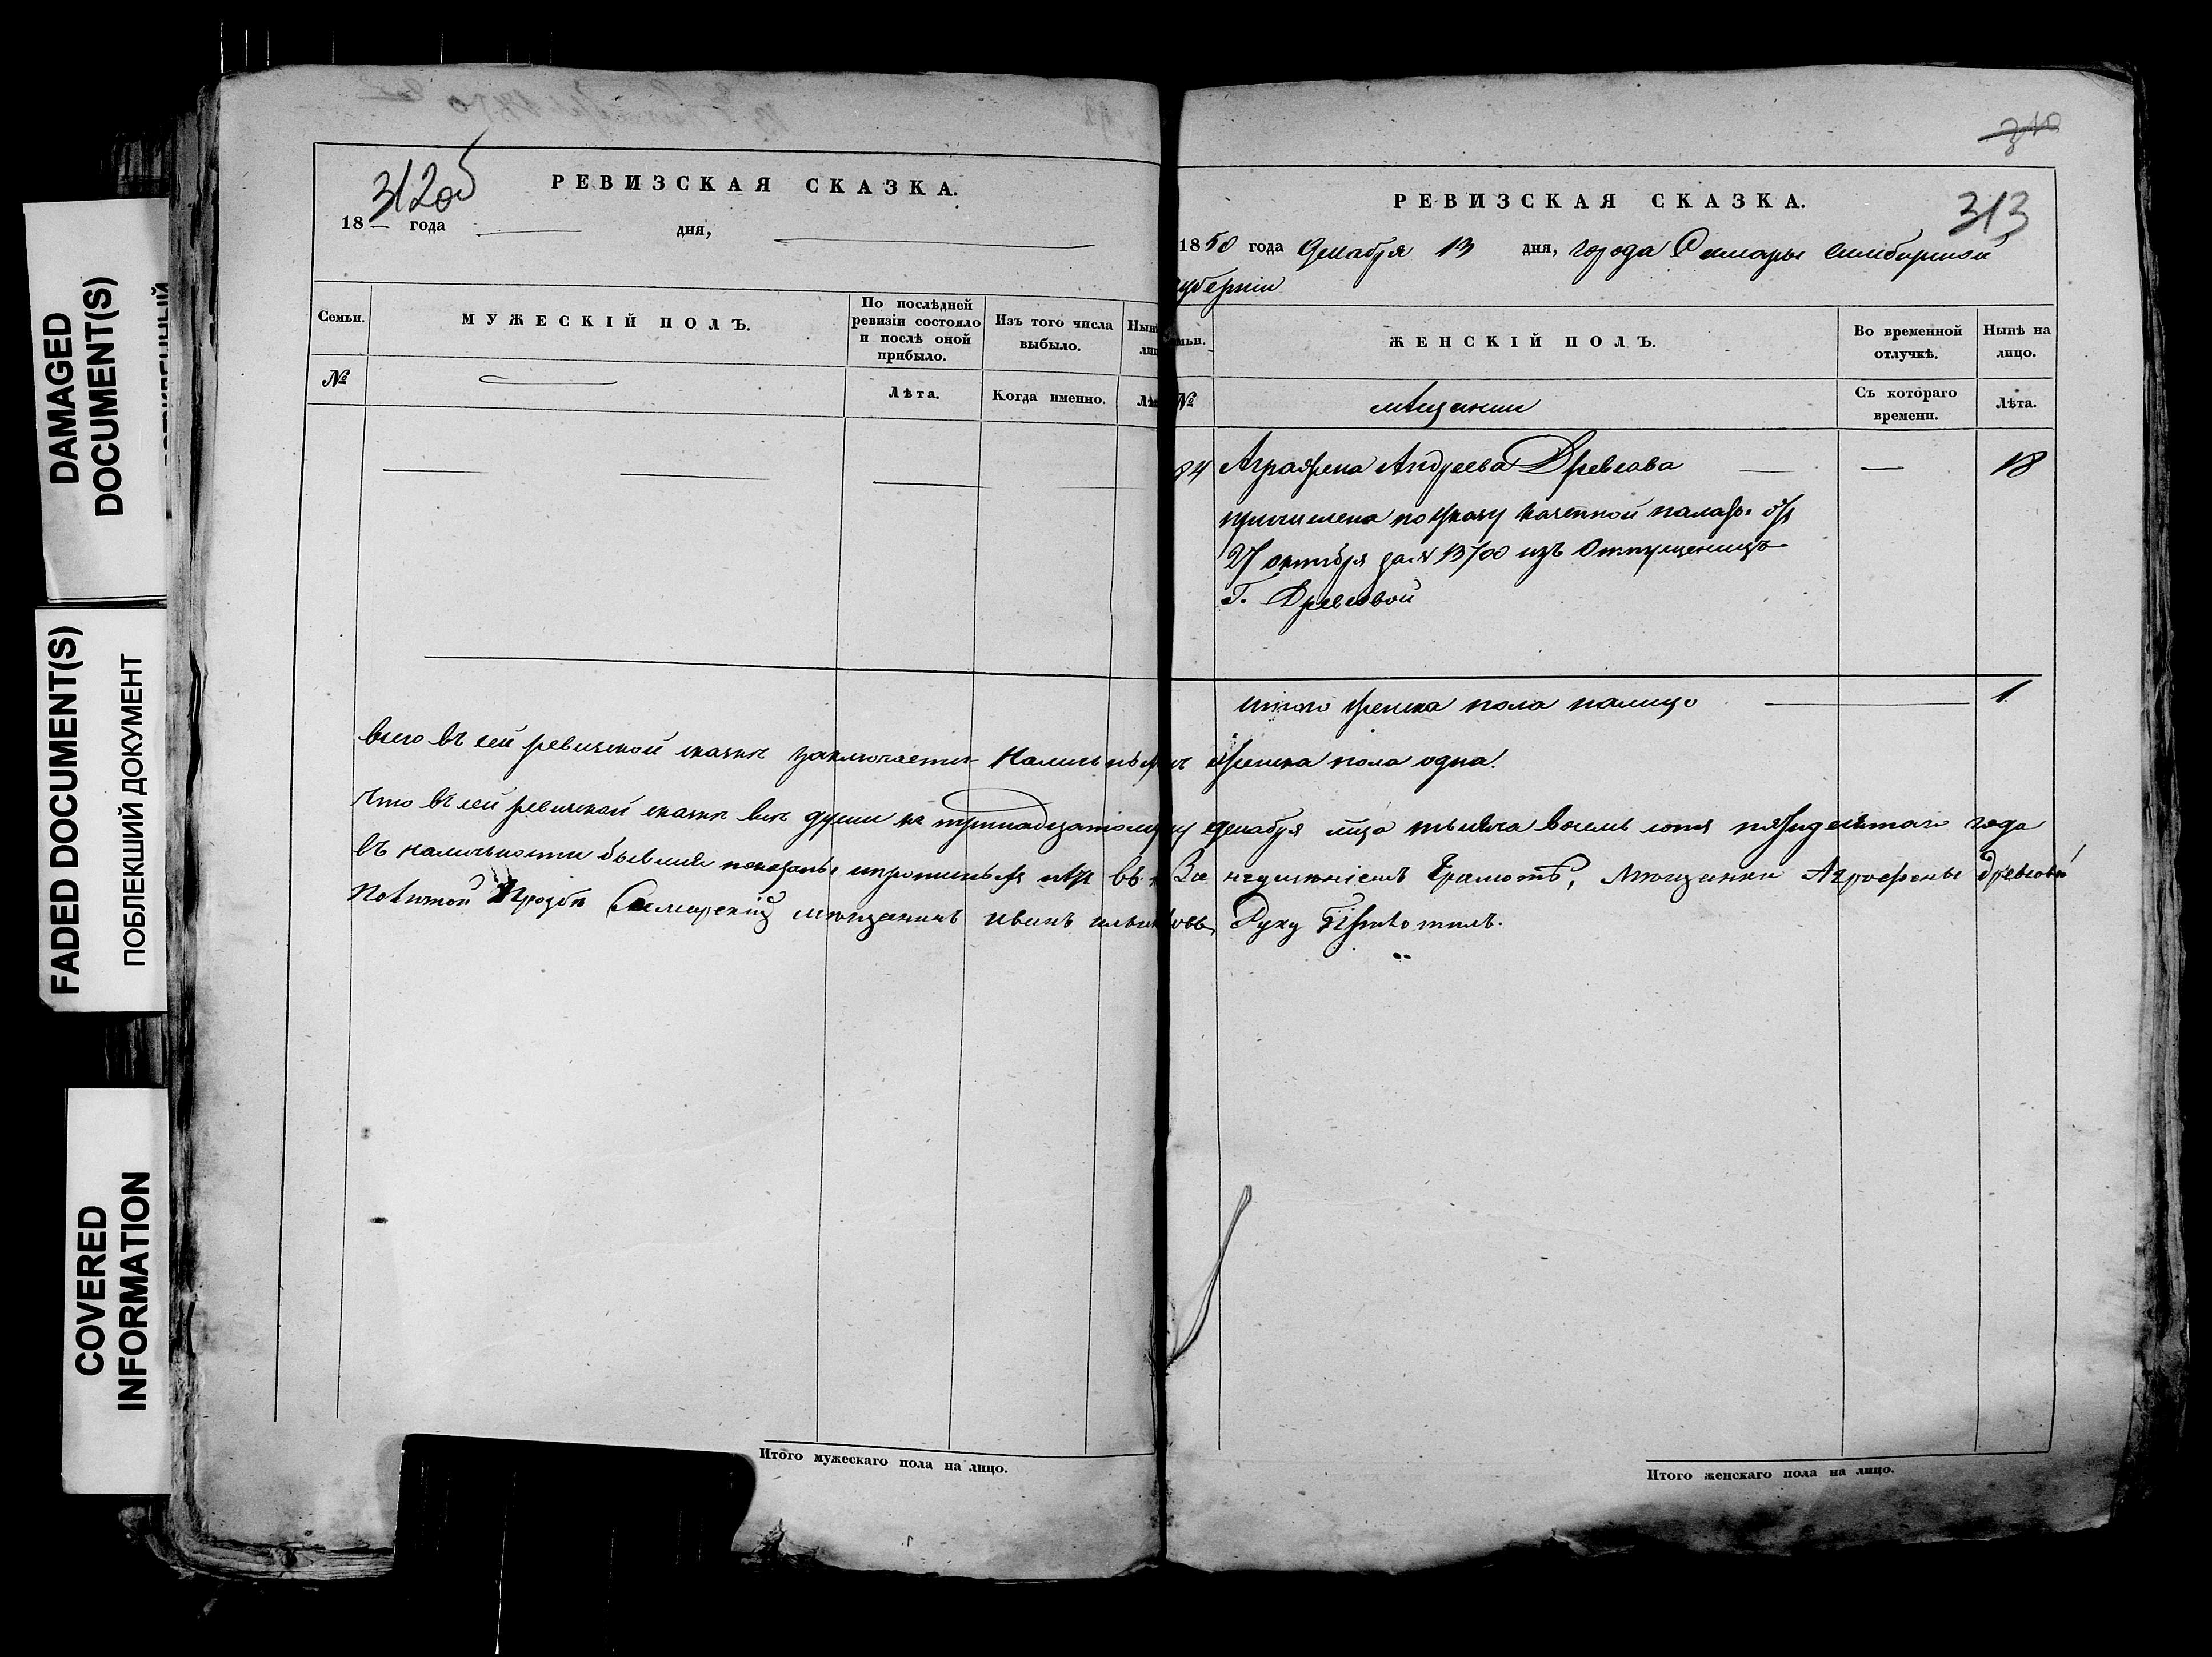 DAMAGED
DOCUMENT(S)
FADED DOCUMENT(S)
ПОБЛЕКШИЙ ДОКУМЕНТ
COVERED
INFORMATION
312об
РЕВИЗСКАЯ СКАЗКА.
18 — года — дня, —
Семьи.
МУЖЕСКІЙ ПОЛЪ.
По послѣдней
ревизіи состояло
и послѣ оной
прибыло.
Изъ того числа
выбыло.
№
Лѣта.
Когда именно.
310
313
РЕВИЗСКАЯ СКАЗКА.
1850 года Декабря 13 дня, города Самары Симбирской
губерніи
ЖЕНСКІЙ ПОЛЪ.
Во временной
отлучкѣ.
Нынѣ на
лицо.
№
мѣщанки
Съ котораго
времени.
Лѣта.
84 Аграфена Андреева Древсова — — 18
причислена по указу казенной палаты отъ
27 октября за № 13700 изъ Отпущеницъ
Г. Древсовой
итого женска пола налицо — 1
всего въ сей ревизской сказкѣ заключается наличныхъ женска пола одна.
Что въ сей ревизской сказкѣ всѣ души к тринадцатому декабря тысяча восемь сотъ пятидесятаго года
въ наличности бывшия показаны и пропишныхъ нѣтъ въ За неумѣніемъ Грамотѣ, Мѣщанки Аграфены Древсовой
По личной Прозбѣ Самарский мѣщанинъ иванъ Руку Приложилъ.
Итого мужескаго пола на лицо.
Итого женскаго пола на лицо.